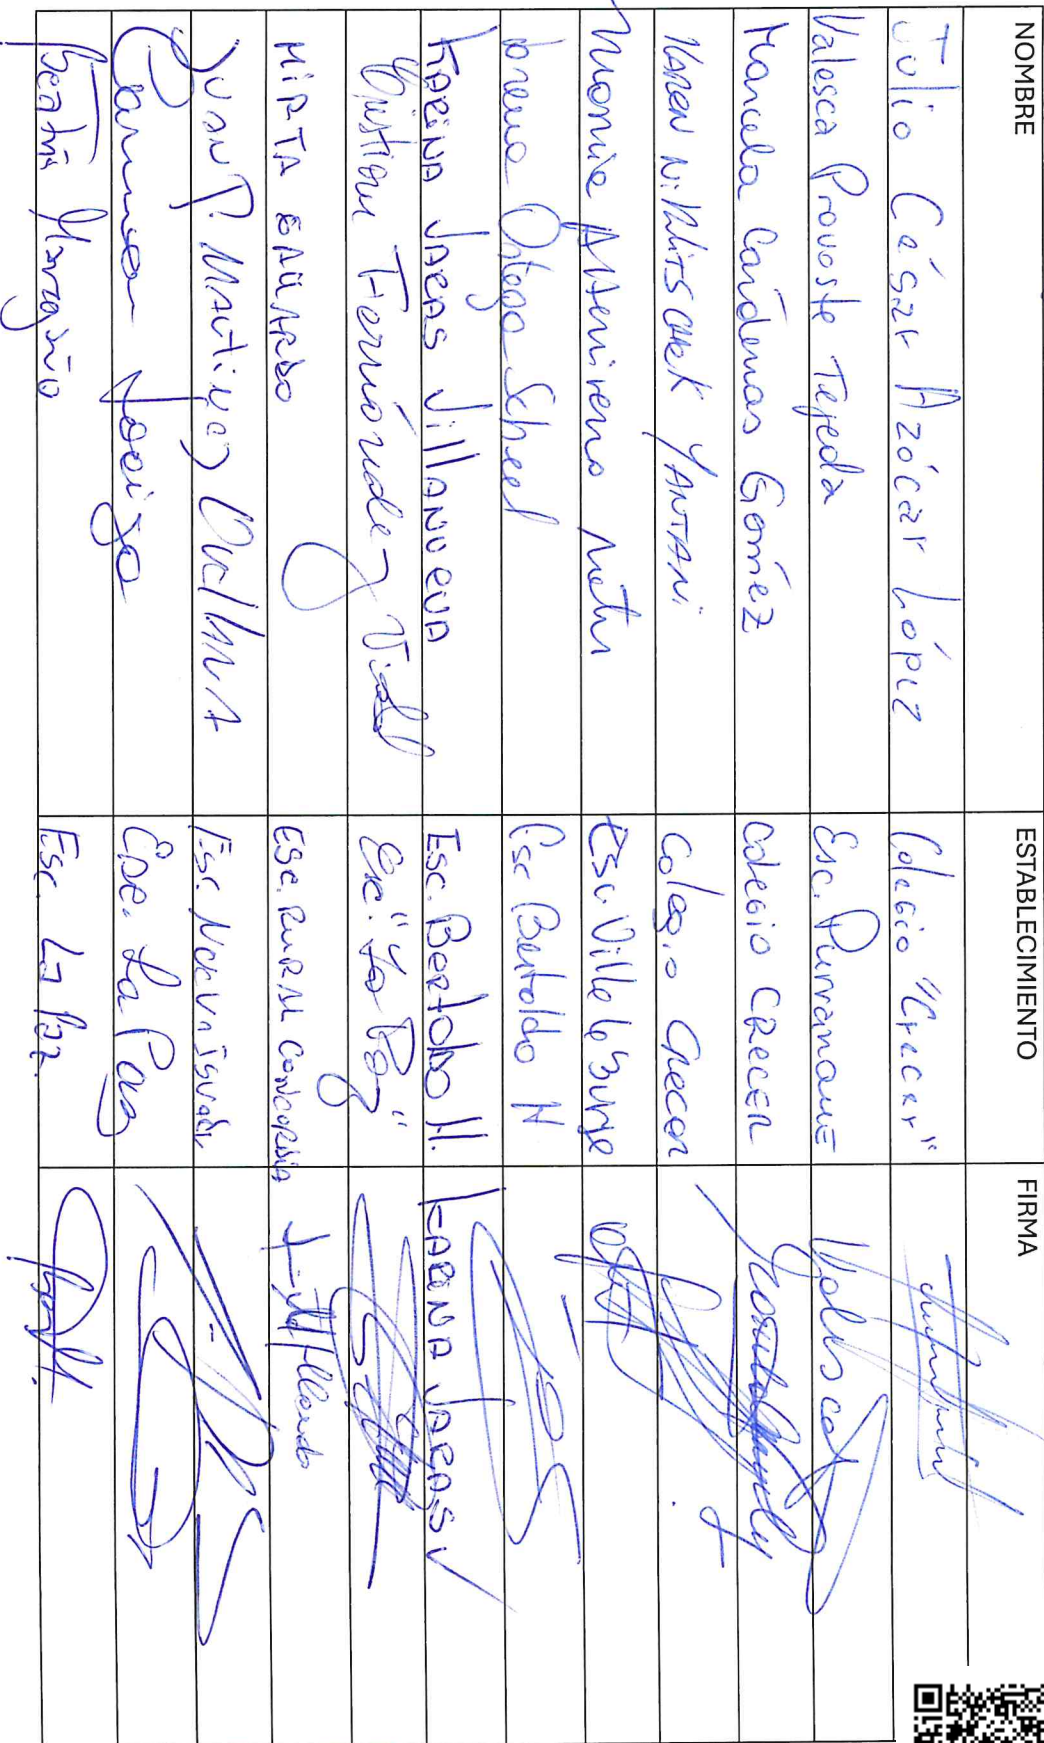 NOMBRE ESTABLECIMIENTO FIRMA
Julio César Azócar López Colegio "Crecer"
Valesca Provoste Tejeda Esc. Purranque Valesca
Marcela Cárdenas Gómez Colegio CRECER
KAREN Niklitschek YANTANI Colegio Crecer
Esc. Villa lo Burgo
Lorena Ortega Scheel Esc Bertoldo H
KARINA JARAS VILLANUEVA Esc. Bertoldo H. KARINA JARAS V
Cristian Fernández Vidal Esc. "La Paz"
MIRTA GALLARDO ESC. RURAL CONCORDIA
JUAN P. Martinez Esc.
Carmen Esc. La Paz
Beatriz Esc. La Paz.